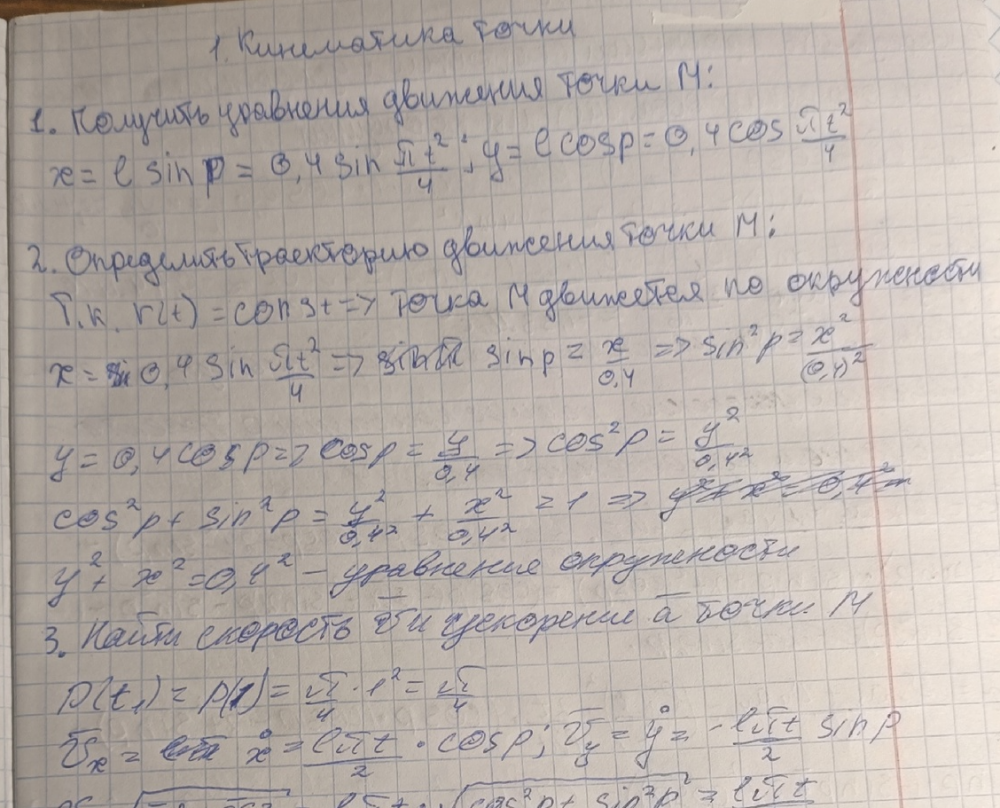 1. Кинематика точки
1. Получить уравнения движения точки М:
x = l sin p = 0,4 sin πt²/4 ; y = l cos p = 0,4 cos πt²/4
2. Определить траекторию движения точки М:
Т.к. r(t) = const => точка М движется по окружности
x = 0,4 sin πt²/4 => sin p = x/0,4 => sin² p = x²/(0,4)²
y = 0,4 cos p => cos p = y/0,4 => cos² p = y²/0,4²
cos² p + sin² p = y²/0,4² + x²/0,4² = 1 => y² + x² = 0,4²
y² + x² = 0,4² – уравнение окружности
3. Найти скорость v̄ и ускорение ā точки М
p(t₁) = p(1) = π/4 · 1² = π/4
v̄x = ẋ = lπt/2 · cos p; v̄y = ẏ = - lπt/2 sin p
cos² p + sin² p = lπt